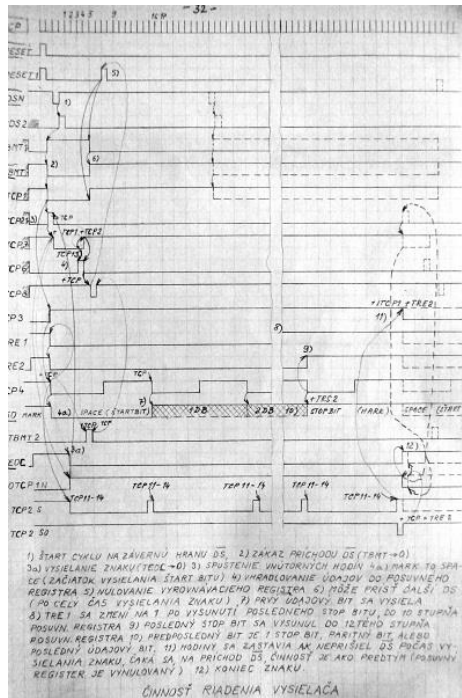 - 32 -
1 2 3 4 5 9
RESET
RESET 1 5)
DSN 1)
DS 2
TBMT
2) 6)
TCP 1
3) TCP
TCP1 + TCP2
4)
+TCP
+ITCP1 +TRE2
TCP 3 11)
TRE 1 8)
TRE 2 9)
TCP
TCP 4
+TRE2
SO MARK 4a) SPACE (ŠTARTBIT) 7) 1DB 2DB 10) STOPBIT (MARK) SPACE (ŠTART
TBMT 2 TCP TCP
EOC 3a) 12)
TCP 11-14 TCP 11-14 TCP 11-14 TCP 11-14
TCP 2 S
+ TCP + TRE 2
TCP 2 SO
1) ŠTART CYKLU NA ZÁVERNÚ HRANU DS, 2) ZÁKAZ PRÍCHODU DS (TBMT→0)
3a) VYSIELANIE ZNAKU (TEOC→0) 3) SPUSTENIE VNÚTORNÝCH HODÍN 4a) MARK TO SPA-
CE (ZAČIATOK VYSIELANIA ŠTART BITU) 4) VHRADLOVANIE ÚDAJOV DO POSUVNÉHO
REGISTRA 5) NULOVANIE VYROVNÁVACIEHO REGISTRA 6) MÔŽE PRÍSŤ ĎALŠÍ DS
(PO CELÝ ČAS VYSIELANIA ZNAKU) 7) PRVÝ ÚDAJOVÝ BIT SA VYSIELA
8) TRE 1 SA ZMENÍ NA 1 PO VYSUNUTÍ POSLEDNÉHO STOP BITU, DO 10 STUPŇA
POSUVN. REGISTRA 9) POSLEDNÝ STOP BIT SA VYSUNUL DO 12TEHO STUPŇA
POSUVN. REGISTRA 10) PREDPOSLEDNÝ BIT JE 1 STOP BIT, PARITNÝ BIT, ALEBO
POSLEDNÝ ÚDAJOVÝ BIT. 11) HODINY SA ZASTAVIA AK NEPRIŠIEL DS POČAS VY-
SIELANIA ZNAKU, ČAKÁ SA NA PRÍCHOD DS, ČINNOSŤ JE AKO PREDTÝM (POSUVNÝ
REGISTER JE VYNULOVANÝ) 12) KONIEC ZNAKU.
ČINNOSŤ RIADENIA VYSIELAČA